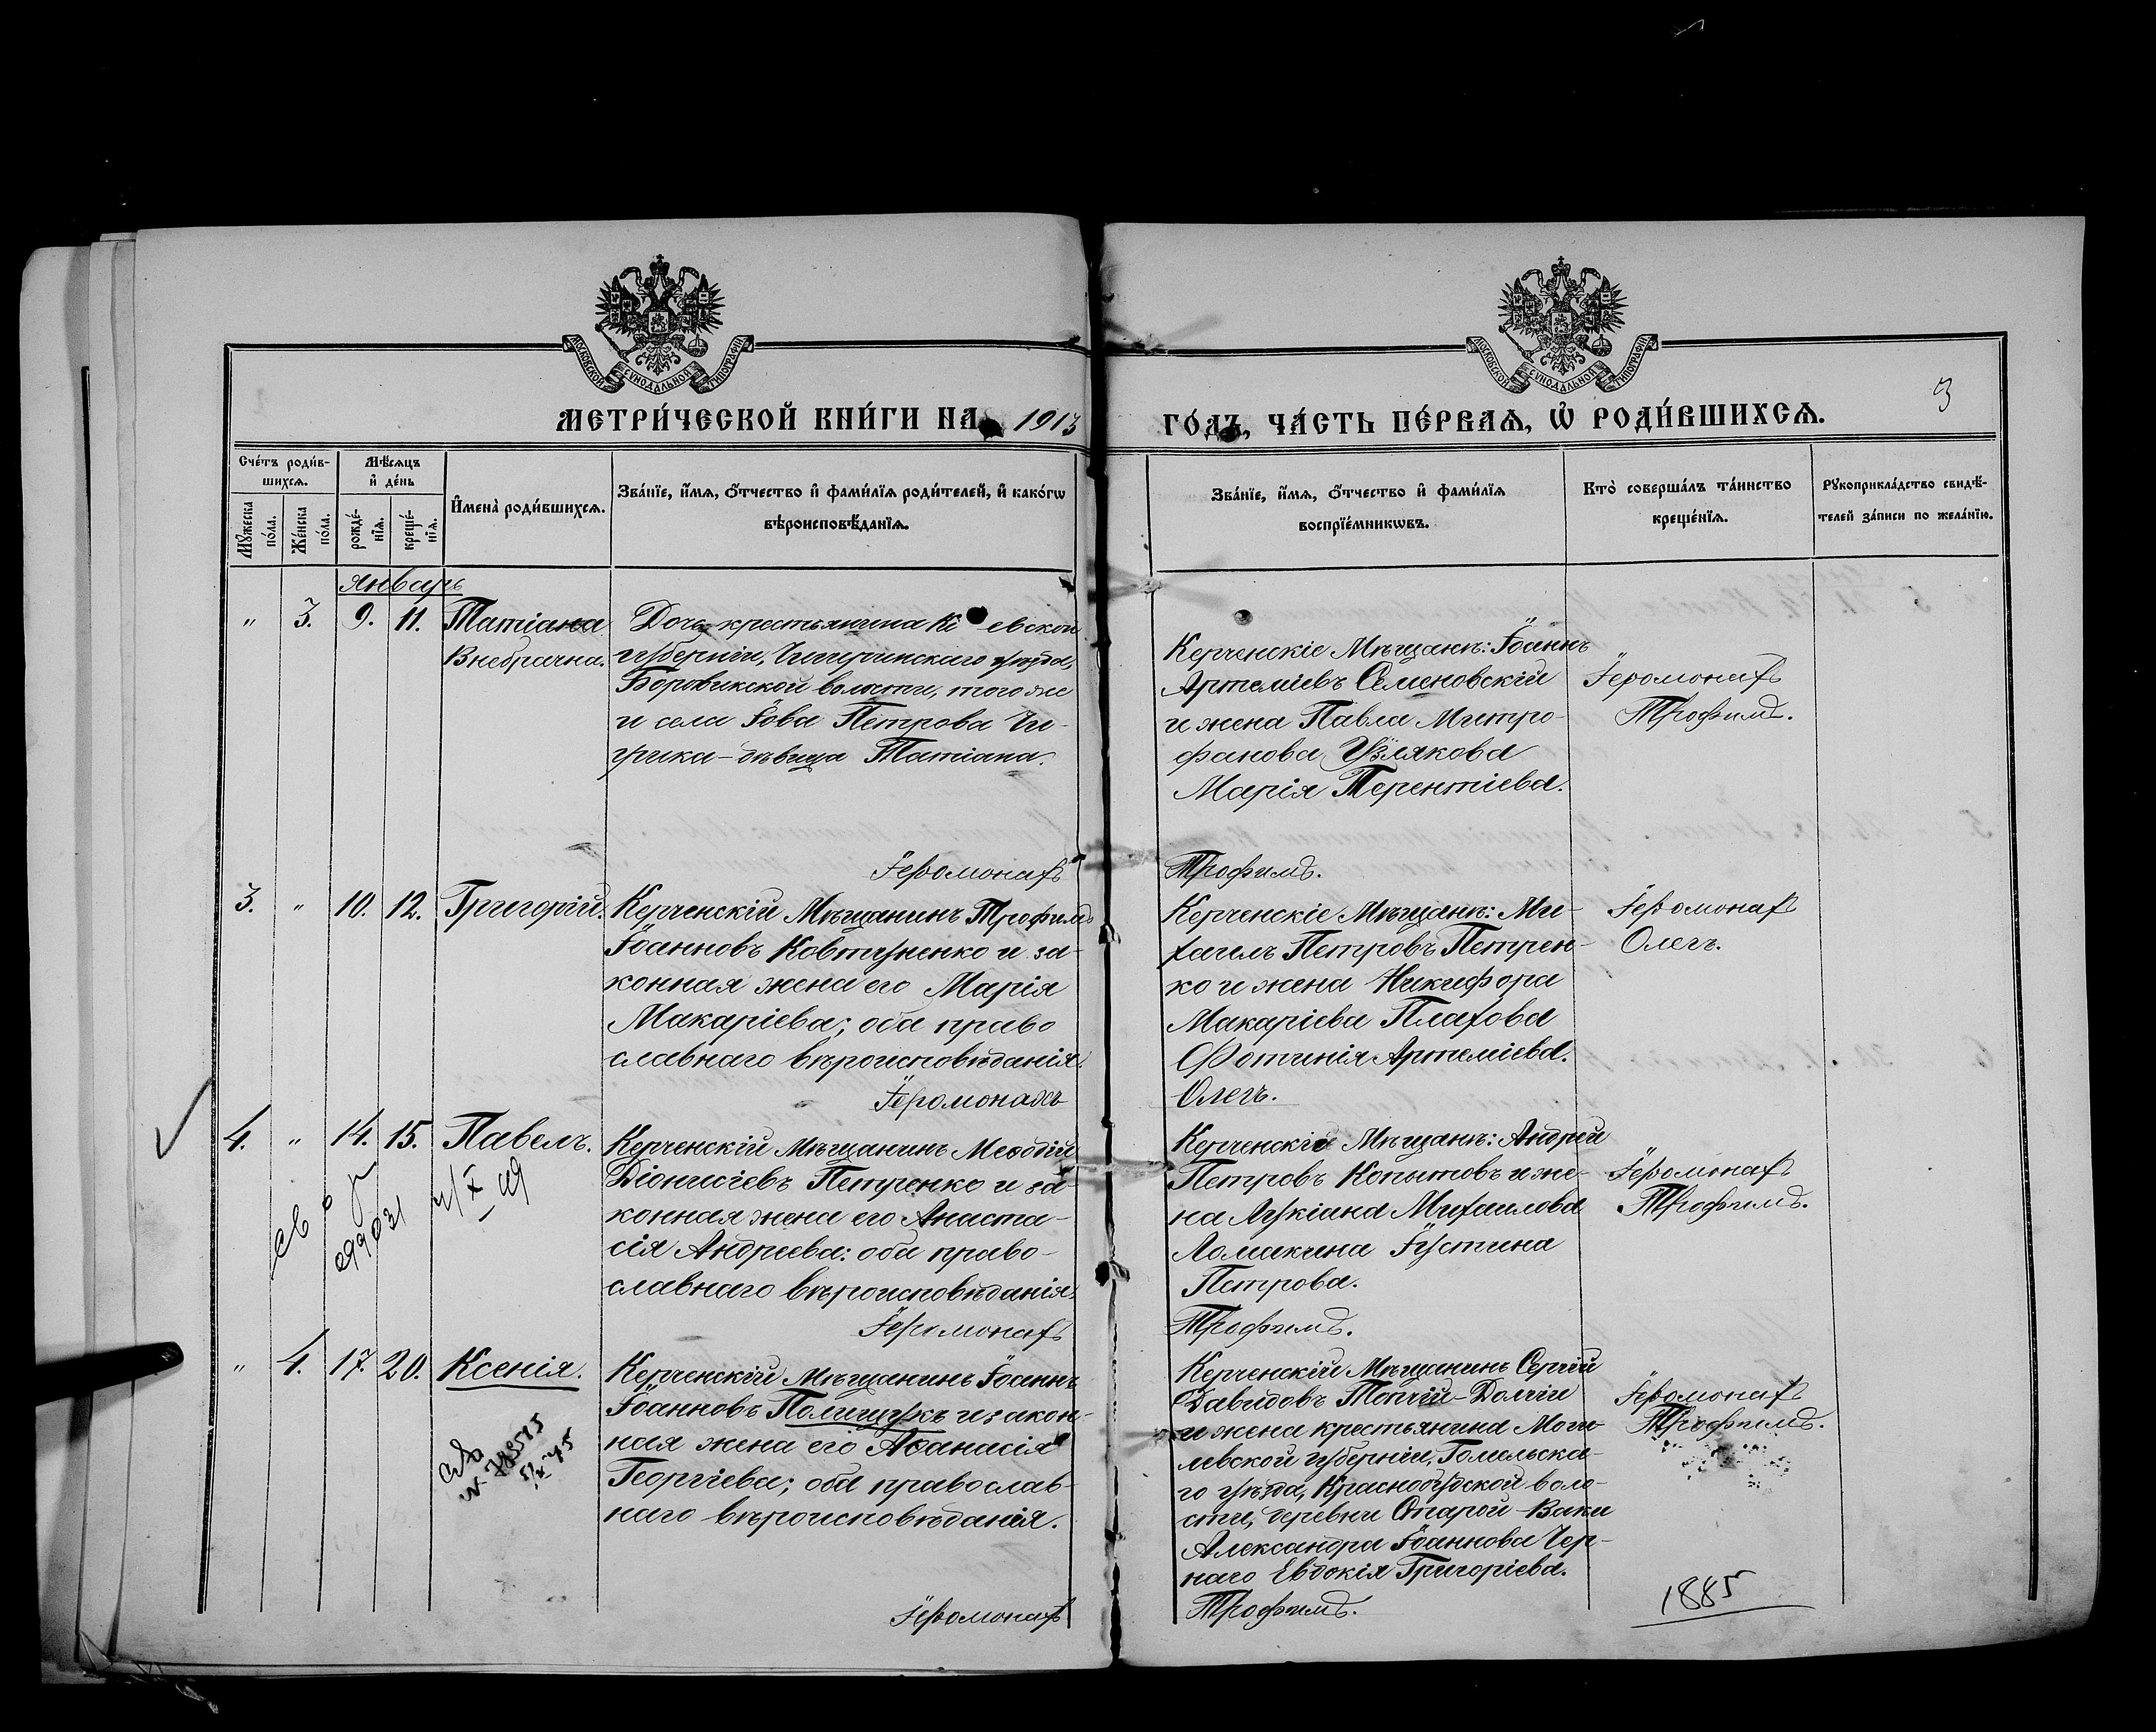 МОСКОВСКОЙ СѴНОДАЛЬНОЙ ТИПОГРАФІИ
МОСКОВСКОЙ СѴНОДАЛЬНОЙ ТИПОГРАФІИ
3
МЕТРИ́ЧЕСКОЙ КНИ́ГИ НА 1913
ГО́ДЪ, ЧА́СТЬ ПЕ́РВАѦ, Ѽ РОДИ́ВШИХСѦ.
Сче́тъ роди́в-
шихсѧ.
Мѣ́сѧцъ
и҆ де́нь
Мꙋ́жеска
по́ла.
Же́нска
по́ла.
рожде́-
нїѧ.
креще́-
нїѧ.
И҆мена̀ роди́вшихсѧ.
Зва́нїе, и҆́мѧ, ѻ҆́тчество и҆ фами́лїѧ роди́телей, и҆ како́гѡ
вѣроисповѣ́данїѧ.
Зва́нїе, и҆́мѧ, ѻ҆́тчество и҆ фами́лїѧ
воспрїе́мникѡвъ.
Кто̀ соверша́лъ та́инство
креще́нїѧ.
Рꙋкоприкла́дство свидѣ́-
телей за́писи по жела́нїю.
Январь
" 3. 9. 11. Татіана
Внебрачна.
Дочь крестьянина Кіевской
губерніи, Чигиринскаго уѣзда,
Боровикской волости, того же
и села Іова Петрова Чи-
грика - дѣвица Татіана.
Іеромонахъ
Керченскіе Мѣщанѣ: Іоаннъ
Артеміевъ Семеновскій
и жена Павла Митро-
фанова Узлякова
Марія Терентіева.
Трофимъ.
Іеромонахъ
Трофимъ.
3. " 10. 12. Григорій.
Керченскій Мѣщанинъ Трофимъ
Іоанновъ Ковтуненко и за-
конная жена его Марія
Макаріева; оба право
славнаго вѣроисповѣданія.
Іеромонахъ
Керченскіе Мѣщанѣ: Ми-
хаилъ Петровъ Петрен-
ко и жена Никифора
Макаріева Плахова
Фотинія Артеміева.
Олегъ.
Іеромонахъ
Олегъ.
4. " 14. 15. Павелъ.
Керченскій Мѣщанинъ Меѳодій
Діонисіевъ Петренко и за-
конная жена его Анаста-
сія Андреева: оба право-
славнаго вѣроисповѣданія.
Іеромонахъ
Керченскіе Мѣщанѣ: Андрей
Петровъ Копытовъ и же-
на Лукіана Михаилова
Ломакина Іустина
Петрова.
Трофимъ.
Іеромонахъ
Трофимъ.
" 4. 17. 20. Ксенія.
Керченскій Мѣщанинъ Іоаннъ
Іоанновъ Полищукъ и закон-
ная жена его Аѳанасія
Георгіева; оба православ-
наго вѣроисповѣданія.
Іеромонахъ
Керченскій Мѣщанинъ Сергій
Давидовъ Топчій-Долгій
и жена крестьянина Моги-
левской губерніи, Гомельска-
го уѣзда, Краснобудской воло-
сти, деревни Старой-
Александра Іоаннова Чер-
наго Евдокія Григоріева.
Трофимъ.
Іеромонахъ
Трофимъ.
1885